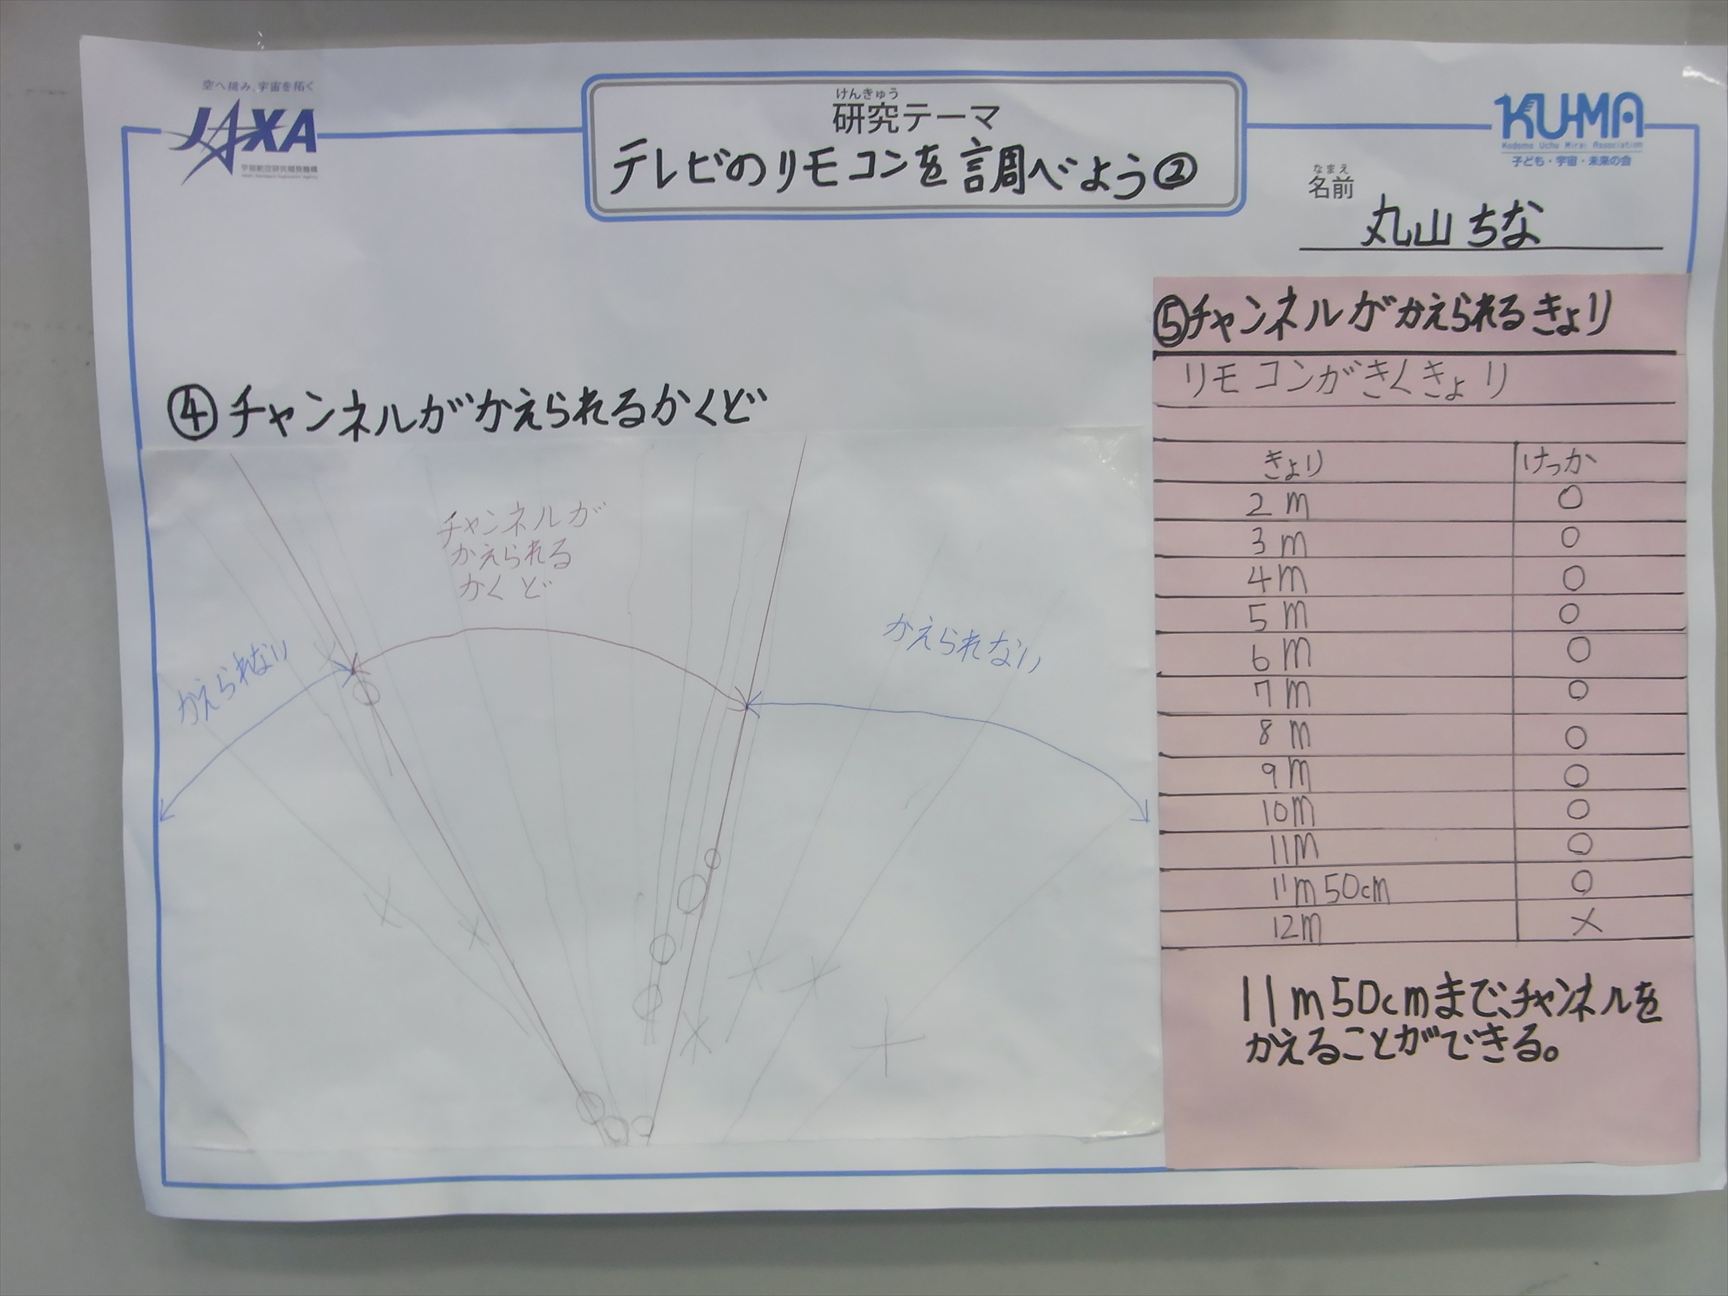 空へ挑み、宇宙を拓く
JAXA
宇宙航空研究開発機構
けんきゅう
研究テーマ
テレビのリモコンを調べよう②
KU-MA
Kodomo Uchu Mirai Association
子ども・宇宙・未来の会
なまえ
名前
丸山ちな
④チャンネルがかえられるかくど
チャンネルが
かえられる
かくど
かえられない
かえられない
⑤チャンネルがかえられるきょり
リモコンがきくきょり
きょり けっか
2m ○
3m ○
4m ○
5m ○
6m ○
7m ○
8m ○
9m ○
10m ○
11m ○
11m50cm ○
12m ×
11m50cmまで、チャンネルを
かえることができる。